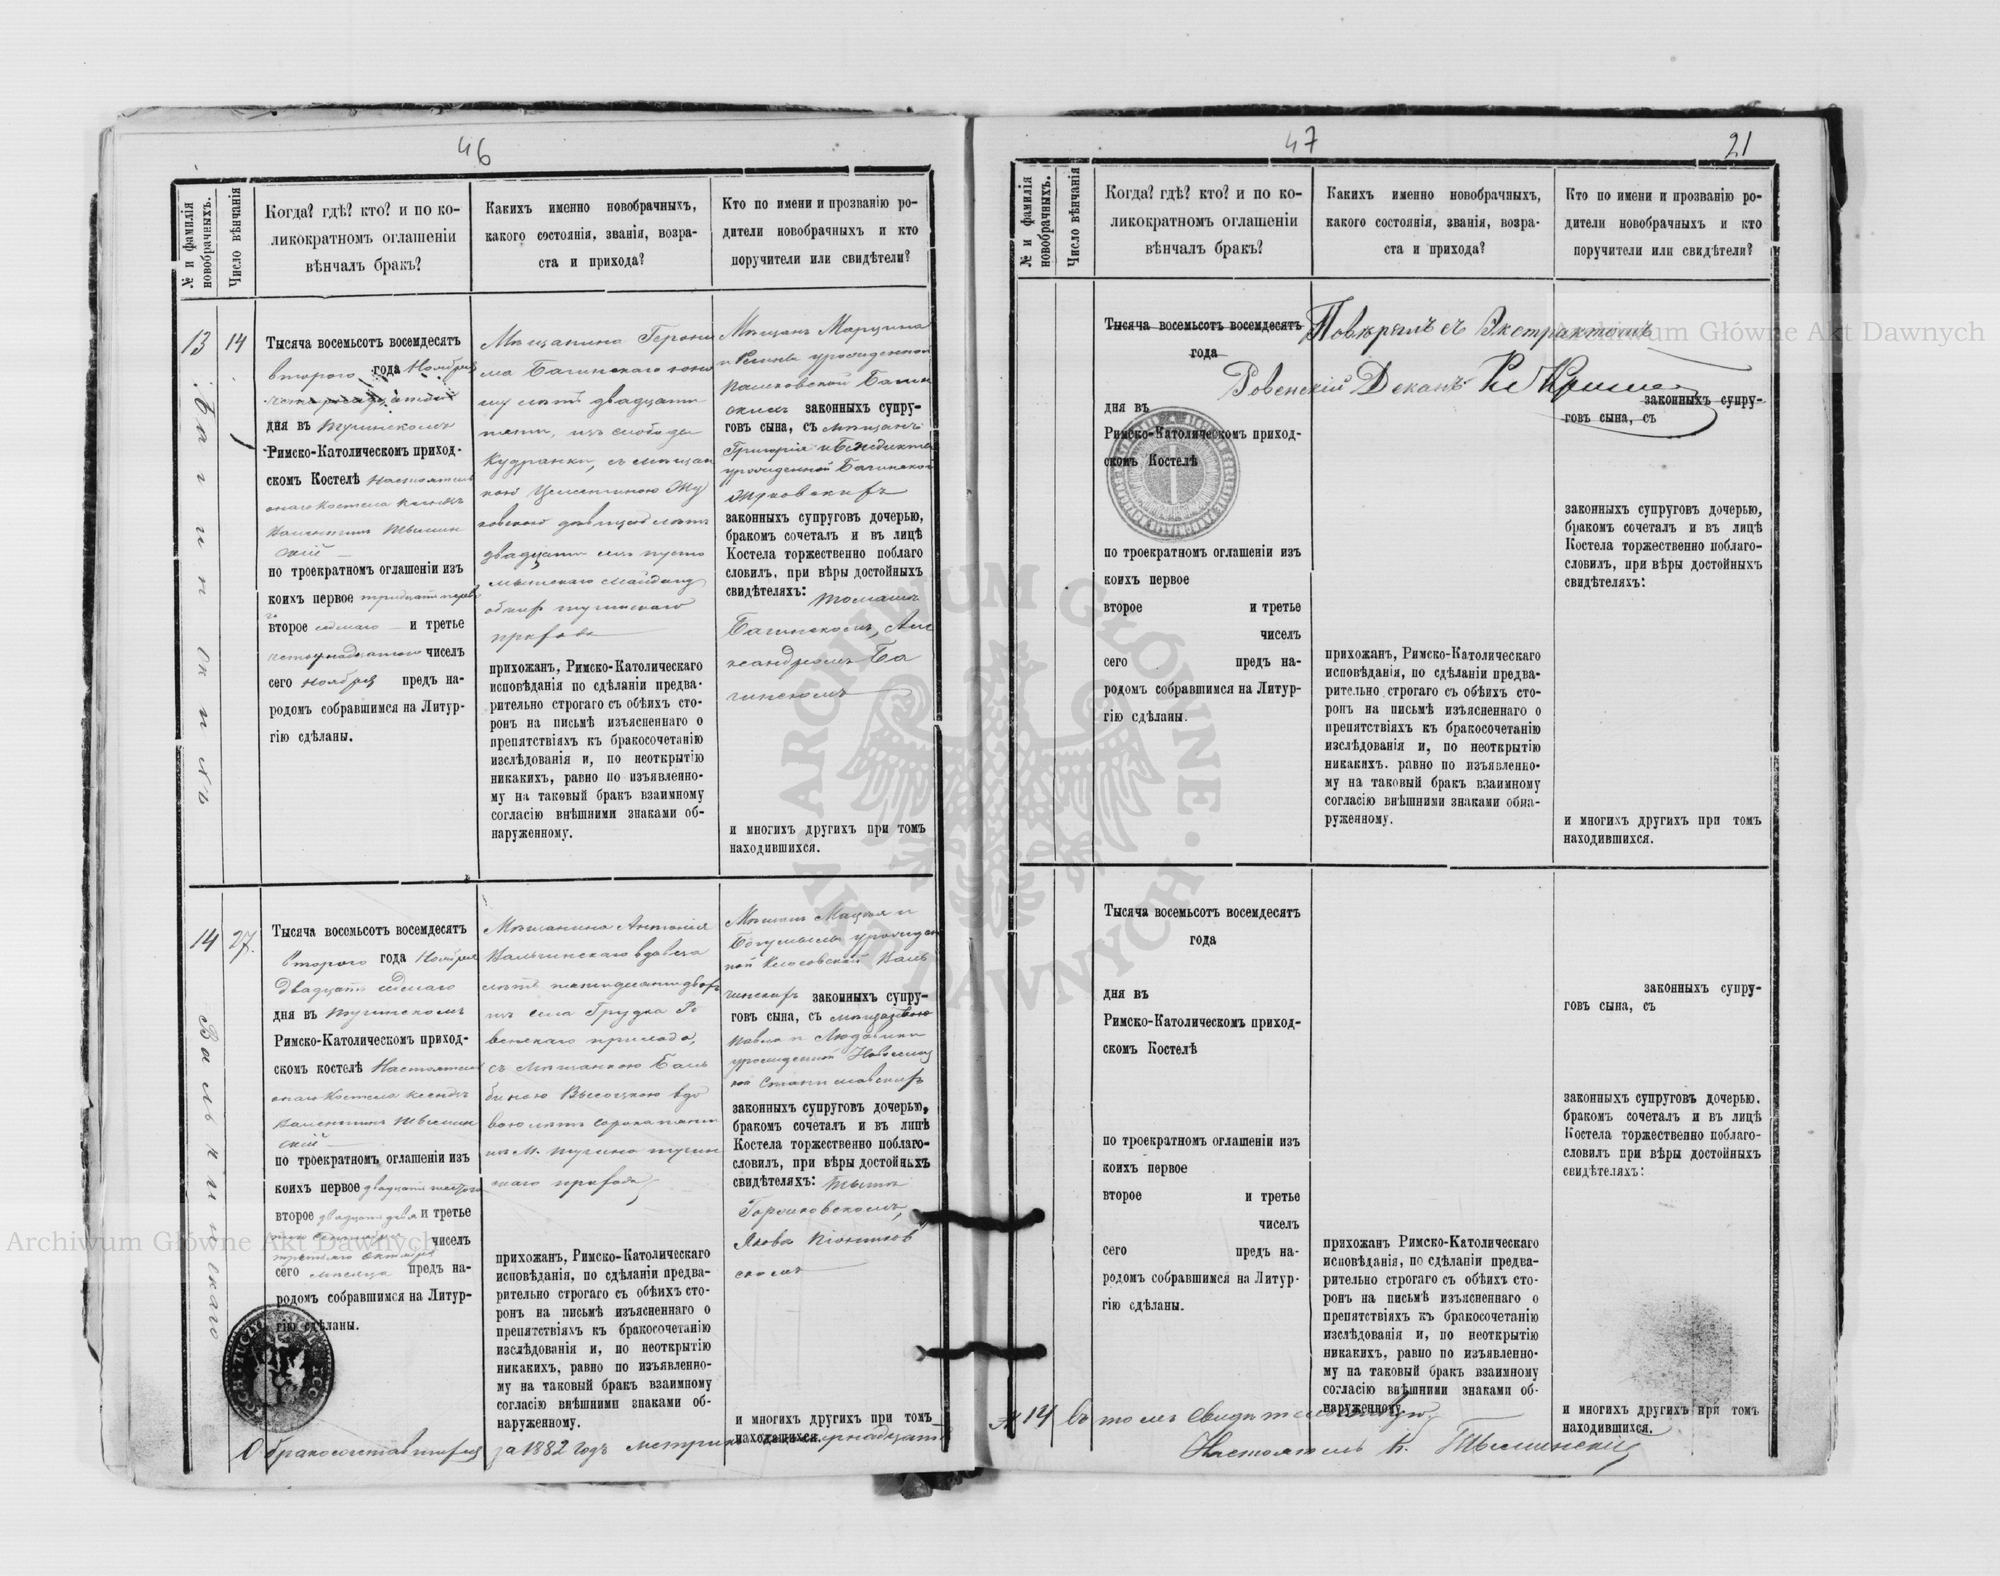 46
№ и фамилія новобрачныхъ.
Число вѣнчанія
Когда? гдѣ? кто? и по ко-
ликократномъ оглашеніи
вѣнчалъ бракъ?
Какихъ именно новобрачныхъ,
какого состоянія, званія, возра-
ста и прихода?
Кто по имени и прозванію ро-
дители новобрачныхъ и кто
поручители или свидѣтели?
13
14
Тысяча восемьсотъ восемдесятъ
втораго года Ноября
дня въ Тучинскомъ
Римско-Католическомъ приход-
скомъ Костелѣ Настоятель
онаго Костела ксендзъ
Валентинъ Твълин
скій
по троекратномъ оглашеніи изъ
коихъ первое тридцать перва
го
второе седмаго и третье
четырнадцатаго чиселъ
сего Ноября предъ на-
родомъ собравшимся на Литур-
гію сдѣланы.
Мѣщанина Герони
ма Багинскаго юно
шу лѣтъ двадцати
пяти, изъ слободы
Кудранки, съ мѣщан
кою Целестиною Жу
ковскою дѣвицею лѣтъ
двадцати
обоихъ тучинскаго
прихода
прихожанъ, Римско-Католическаго
исповѣданія по сдѣланіи предва-
рительно строгаго съ обѣихъ сто-
ронъ на письмѣ изъясненнаго о
препятствіяхъ къ бракосочетанію
изслѣдованія и, по неоткрытію
никакихъ, равно по изъявленно-
му на таковый бракъ взаимному
согласію внѣшними знаками об-
наруженному.
Мѣщанъ Марцина
и урожденной
Пашковской Багин
скихъ законныхъ супру-
говъ сына, съ мѣщанъ
Григорія и Бенедикты
урожденной Багинской
Жуковскихъ
законныхъ супруговъ дочерью,
бракомъ сочеталъ и въ лицѣ
Костела торжественно поблаго
словилъ, при вѣры достойныхъ
свидѣтеляхъ: Томашъ
Багинскомъ, Алек
сандромъ Ба
гинскомъ
и многихъ другихъ при томъ
находившихся.
Багинскихъ
14
27.
Тысяча восемьсотъ восемдесятъ
втораго года Ноября
двадцать седмаго
дня въ Тучинскомъ
Римско-Католическомъ приход-
скомъ костелѣ Настоятель
онаго Костела ксендзъ
Валентинъ Твълин
скій
по троекратномъ оглашеніи изъ
коихъ первое двадцать шестаго
второе двадцать девя и третье
чиселъ
третьяго Октября
сего мѣсяца предъ на-
родомъ собравшимся на Литур-
гію сдѣланы.
Мѣщанина Антонія
Вальчинскаго вдовца
лѣтъ пятидесяти двухъ
изъ села Грудка Ро
венскаго прихода,
съ мѣщанкою Баль
биною Высоцкою вдо
вою лѣтъ сорока пяти
изъ М. Тучина тучин
скаго прихода,
прихожанъ, Римско-Католическаго
исповѣданія, по сдѣланіи предва-
рительно строгаго съ обѣихъ сто-
ронъ на письмѣ изъясненнаго о
препятствіяхъ къ бракосочетанію
изслѣдованія и, по неоткрытію
никакихъ, равно по изъявленно-
му на таковый бракъ взаимному
согласію внѣшними знаками об-
наруженному.
Мѣщанъ Мацѣя и
Богумилы урожден
ной Клосовской Валь
чинскихъ законныхъ супру-
говъ сына, съ мѣщанкою
Павла и Людвики
урожденной
Станиславскихъ
законныхъ супруговъ дочерью,
бракомъ сочеталъ и въ лицѣ
Костела торжественно поблаго-
словилъ, при вѣры достойныхъ
свидѣтеляхъ:
Горшковскомъ,
Якова Піонтков
скомъ
и многихъ другихъ при томъ
находящихся.
Вальчинскаго
О бракосочетавшихся за 1882 годъ метрикъ четырнадцать
47
21
№ и фамилія новобрачныхъ.
Число вѣнчанія
Когда? гдѣ? кто? и по ко-
ликократномъ оглашеніи
вѣнчалъ бракъ?
Какихъ именно новобрачныхъ,
какого состоянія, званія, возра-
ста и прихода?
Кто по имени и прозванію ро-
дители новобрачныхъ и кто
поручители или свидѣтели?
Тысяча восемьсотъ восемдесятъ
года
Повѣрялъ съ Экстрактомъ
Ровенскій Деканъ
дня въ
Римско-Католическомъ приход-
скомъ Костелѣ
по троекратномъ оглашеніи изъ
коихъ первое
второе и третье
чиселъ
сего предъ на-
родомъ собравшимся на Литур-
гію сдѣланы.
прихожанъ, Римско-Католическаго
исповѣданія, по сдѣланіи предва-
рительно строгаго съ обѣихъ сто-
ронъ на письмѣ изъясненнаго о
препятствіяхъ къ бракосочетанію
изслѣдованія и, по неоткрытію
никакихъ. равно по изъявленно-
му на таковый бракъ взаимному
согласію внѣшними знаками обна-
руженному.
законныхъ супру-
говъ сына, съ
законныхъ супруговъ дочерью,
бракомъ сочеталъ и въ лицѣ
Костела торжественно поблаго-
словилъ, при вѣры достойныхъ
свидѣтеляхъ:
и многихъ другихъ при томъ
находившихся.
Тысяча восемьсотъ восемдесятъ
года
дня въ
Римско-Католическомъ приход-
скомъ Костелѣ
по троекратномъ оглашеніи изъ
коихъ первое
второе и третье
чиселъ
сего предъ на-
родомъ собравшимся на Литур-
гію сдѣланы.
прихожанъ Римско-Католическаго
исповѣданія, по сдѣланіи предва-
рительно строгаго съ обѣихъ сто-
ронъ на письмѣ изъясненнаго о
препятствіяхъ къ бракосочетанію
изслѣдованія и, по неоткрытію
никакихъ, равно по изъявленно-
му на таковый бракъ взаимному
согласію внѣшними знаками об-
наруженному.
законныхъ супру-
говъ сына, съ
законныхъ супруговъ дочерью.
бракомъ сочеталъ и въ лицѣ
Костела торжественно поблаго-
словилъ при вѣры достойныхъ
свидѣтеляхъ:
и многихъ другихъ при томъ
находившихся.
№ 14 въ томъ свидѣтельствую
Настоятель К. Твълинскій
Archiwum Główne Akt Dawnych
Archiwum Główne Akt Dawnych
ARCHIWUM GŁÓWNE AKT DAWNYCH